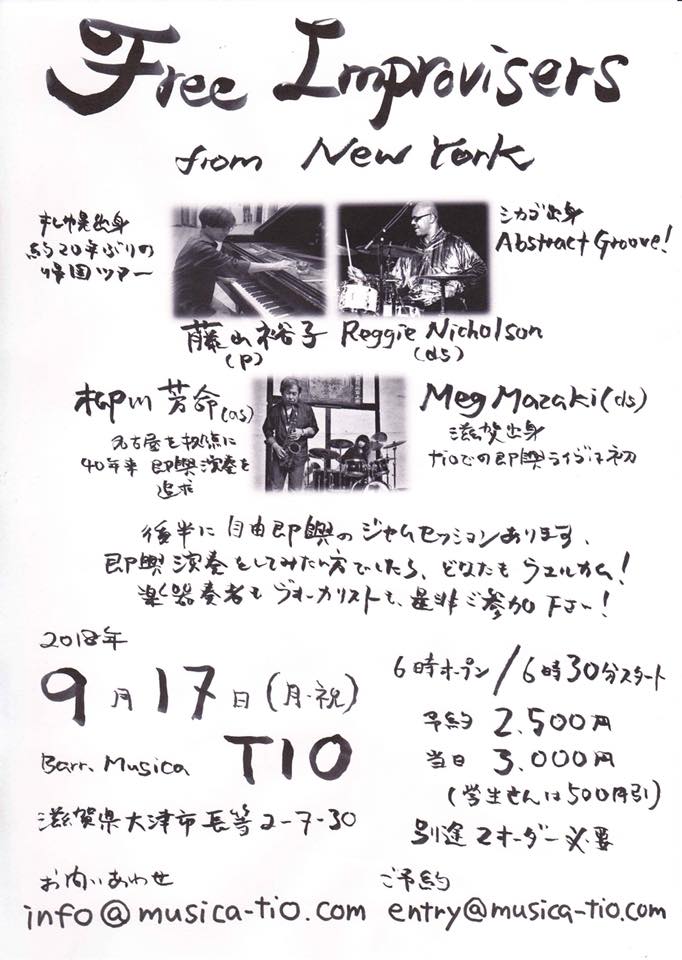 Free Improvisers
from New York
札幌出身
約20年ぶりの
帰国ツアー
シカゴ出身
Abstract Groove!
藤山裕子 Reggie Nicholson
(p) (ds)
柳川芳命(as)
名古屋を拠点に
40年来 即興演奏を
追求
Meg Mazaki(ds)
滋賀出身
TIOでの即興ライブは初
後半に自由即興のジャムセッションあります、
即興演奏をしてみたい方でしたら、どなたもウェルカム!
楽器奏者もヴォーカリストも、是非ご参加下さい!
2018年
9月17日(月・祝)
Barr. Musica TIO
滋賀県大津市長等2-7-30
6時オープン/6時30分スタート
予約 2.500円
当日 3.000円
(学生さんは500円引)
別途2オーダー必要
お問いあわせ
info@musica-tio.com
ご予約
entry@musica-tio.com